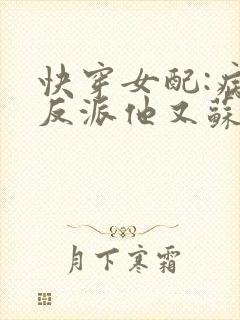 快穿女配:病
反派他又蘇
月下寒霜